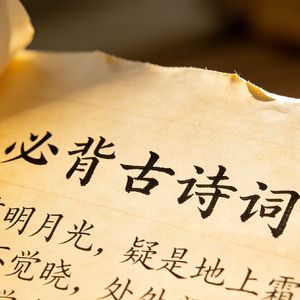 必背古诗词
明月光，疑是地上霜
不觉晓，处处